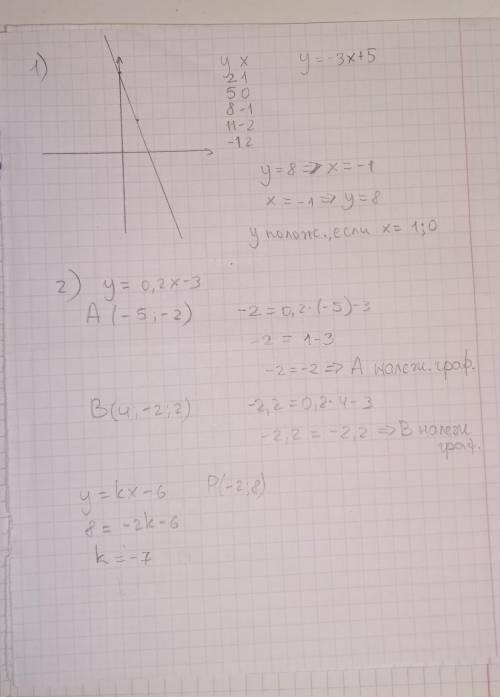 1)
y x
y = -3x+5
2 1
5 0
8 -1
11 -2
-1 2
y=8 => x = -1
x = -1 => y = 8
y полож., если x = 1; 0
2) y = 0,2x-3
A (-5; -2)
-2 = 0,2·(-5)-3
-2 = 1-3
-2 = -2 => A належ. граф.
B(4; -2;2)
-2,2 = 0,2·4-3
-2,2 = -2,2 => B належ
граф.
y = kx-6 P(-2;8)
8 = -2k-6
k = -7